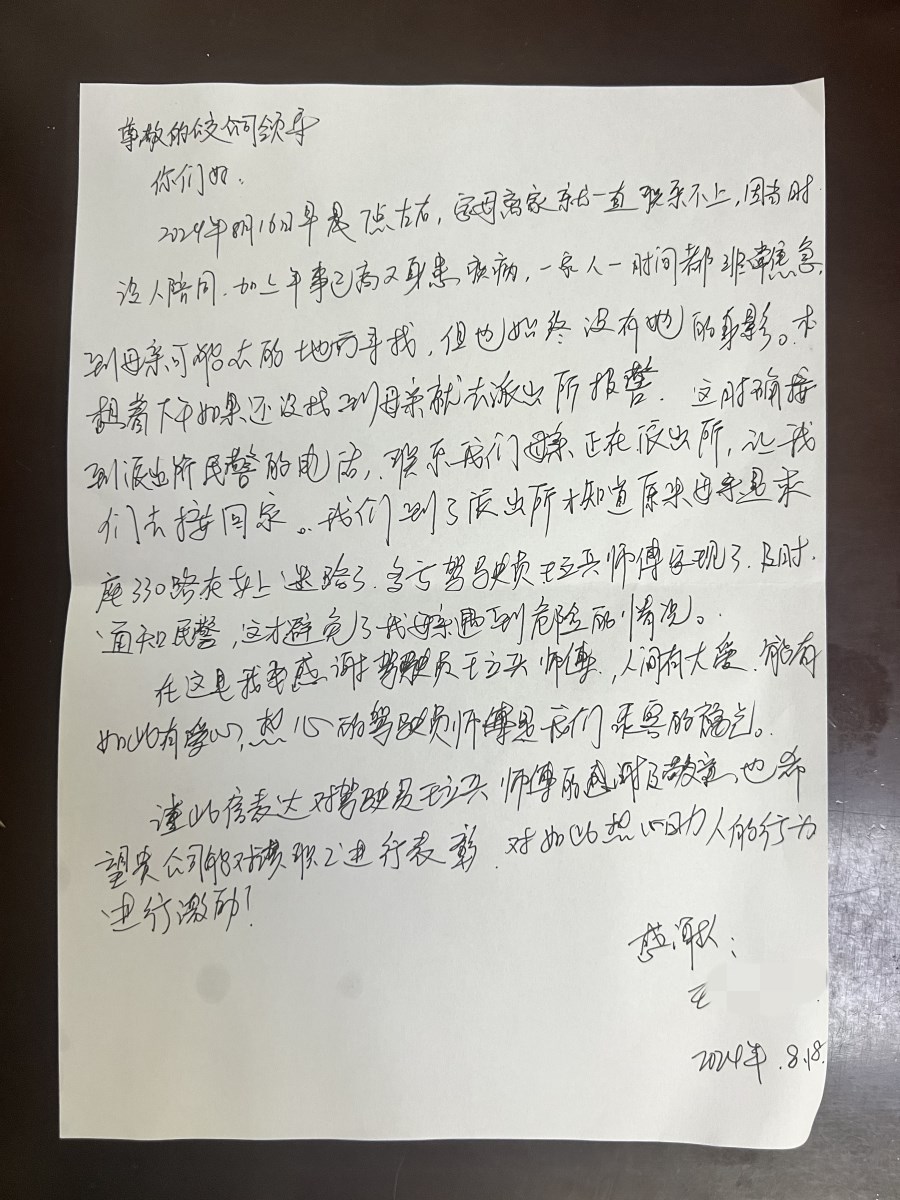 尊敬的公交公司领导
你们好:
2024年8月16日早晨7点左右,家母离家就一直联系不上,因当时
没人陪同.加上年事已高又身患疾病,一家人一时间都非常焦急,
到母亲可能去的地方寻找,但也始终没有她的身影。本
想着下午如果还没找到母亲就去派出所报警.这时候接
到派出所民警的电话,联系我们母亲正在派出所,让我
们去接回家。我们到了派出所才知道原来母亲是乘
座330路在车上迷路了.多亏驾驶员王立兵师傅发现了.及时
通知民警,这才避免了我母亲遇到危险的情况。
在这里我要感谢驾驶员王立兵师傅,人间有大爱.能有
如此有爱心,热心的驾驶员师傅是我们乘客的福气。
谨此信表达对驾驶员王立兵师傅的感谢及敬意,也希
望贵公司能对该职工进行表彰.对如此热心助人的行为
进行激励!
感谢人:
王
2024年.8.18.